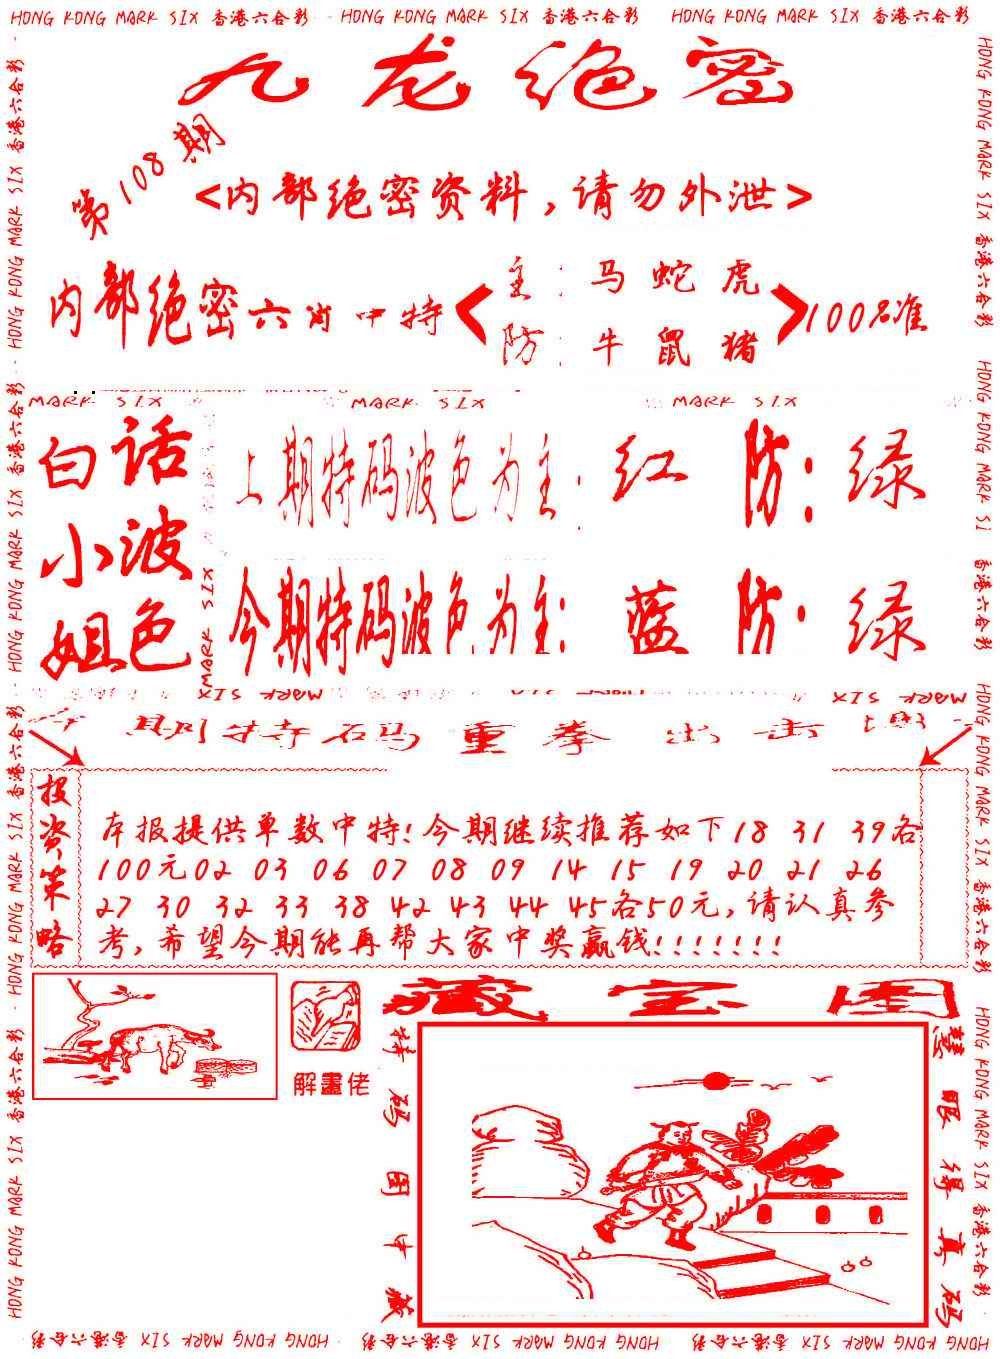 HONG KONG MARK SIX 香港六合彩 HONG KONG MARK SIX 香港六合彩 HONG KONG MARK SIX 香港六合彩
九龙绝密
第108期
<内部绝密资料,请勿外泄>
内部绝密六肖中特
主:马蛇虎
防:牛鼠猪
100%准
MARK SIX MARK SIX MARK SIX
白话
小波
姐色
上期特码波色为主:红 防:绿
今期特码波色为主:蓝 防:绿
MARK SIX
期特码重拳出击
投资策略
本报提供单数中特!今期继续推荐如下18 31 39各
100元02 03 06 07 08 09 14 15 19 20 21 26
27 30 32 33 38 42 43 44 45各50元,请认真参
考,希望今期能再帮大家中奖赢钱!!!!!!!
藏宝图
解畫佬
特码图中藏
慧眼得真码
HONG KONG MARK SIX 香港六合彩